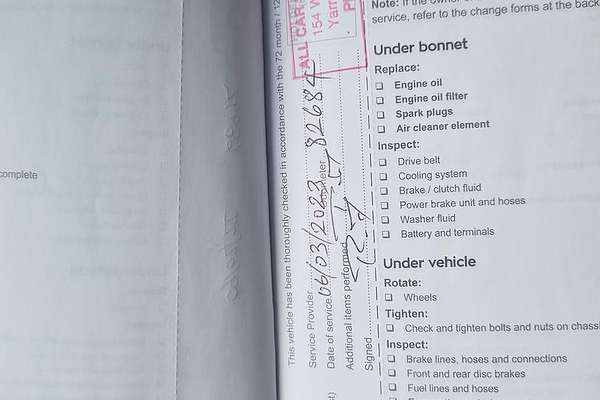 complete
This vehicle has been thoroughly checked in accordance with the 72 month / 12
Service Provider
Date of service 06/03/2023 82684
Additional items performed
Signed
ALL CAR
154 W
Yarr
P
Note: If the owner
service, refer to the change forms at the back
Under bonnet
Replace:
Engine oil
Engine oil filter
Spark plugs
Air cleaner element
Inspect:
Drive belt
Cooling system
Brake / clutch fluid
Power brake unit and hoses
Washer fluid
Battery and terminals
Under vehicle
Rotate:
Wheels
Tighten:
Check and tighten bolts and nuts on chass
Inspect:
Brake lines, hoses and connections
Front and rear disc brakes
Fuel lines and hoses